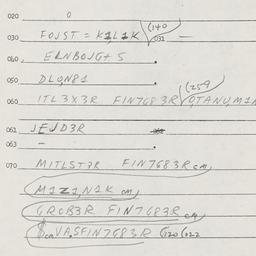 020 0
030 FOJST = K1L1K (140 031 —
040 ELNBOJG+S .
050 DLQN81 .
060 ITL3X3R FIN7G83R (259
061 JEJD3R
063 — .
070 MITLST7R FIN7G83R cm
M1Z1,N1K cm
GROB3R FIN7G83R cm
$cm VA.SFIN7G83R (120 (022